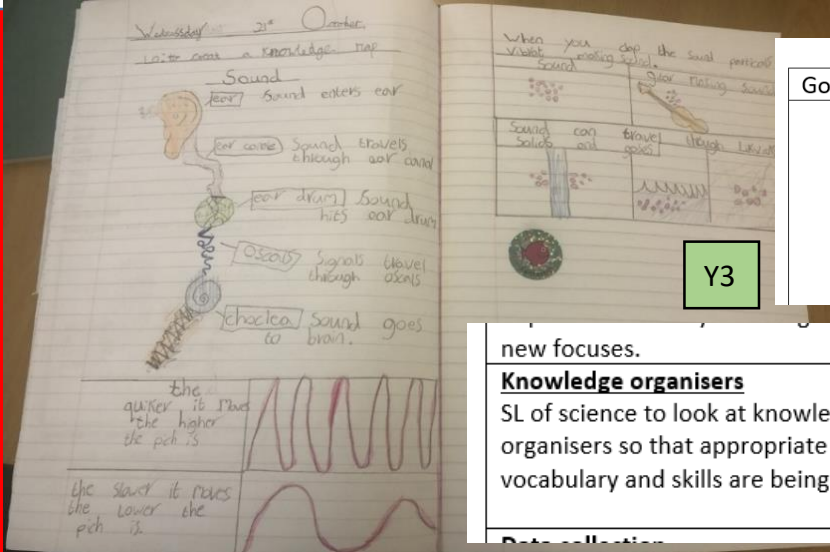 Wednesday 21st October
a knowledge map
Sound
ear Sound enters ear
Sound travels
through ear canal
ear drum Sound
hits ear drum
Oscals Signals travel
through oscals
choclea Sound goes
to brain.
the
quiker it moves
the higher
the pich is
the slower it moves
the Lower the
pich is
When you clap the sound particals
Vibrat making sound.
Sound
making sound
Sound can travel though
Solids and gases
Y3
Go
new focuses.
Knowledge organisers
SL of science to look at knowle
organisers so that appropriate
vocabulary and skills are being